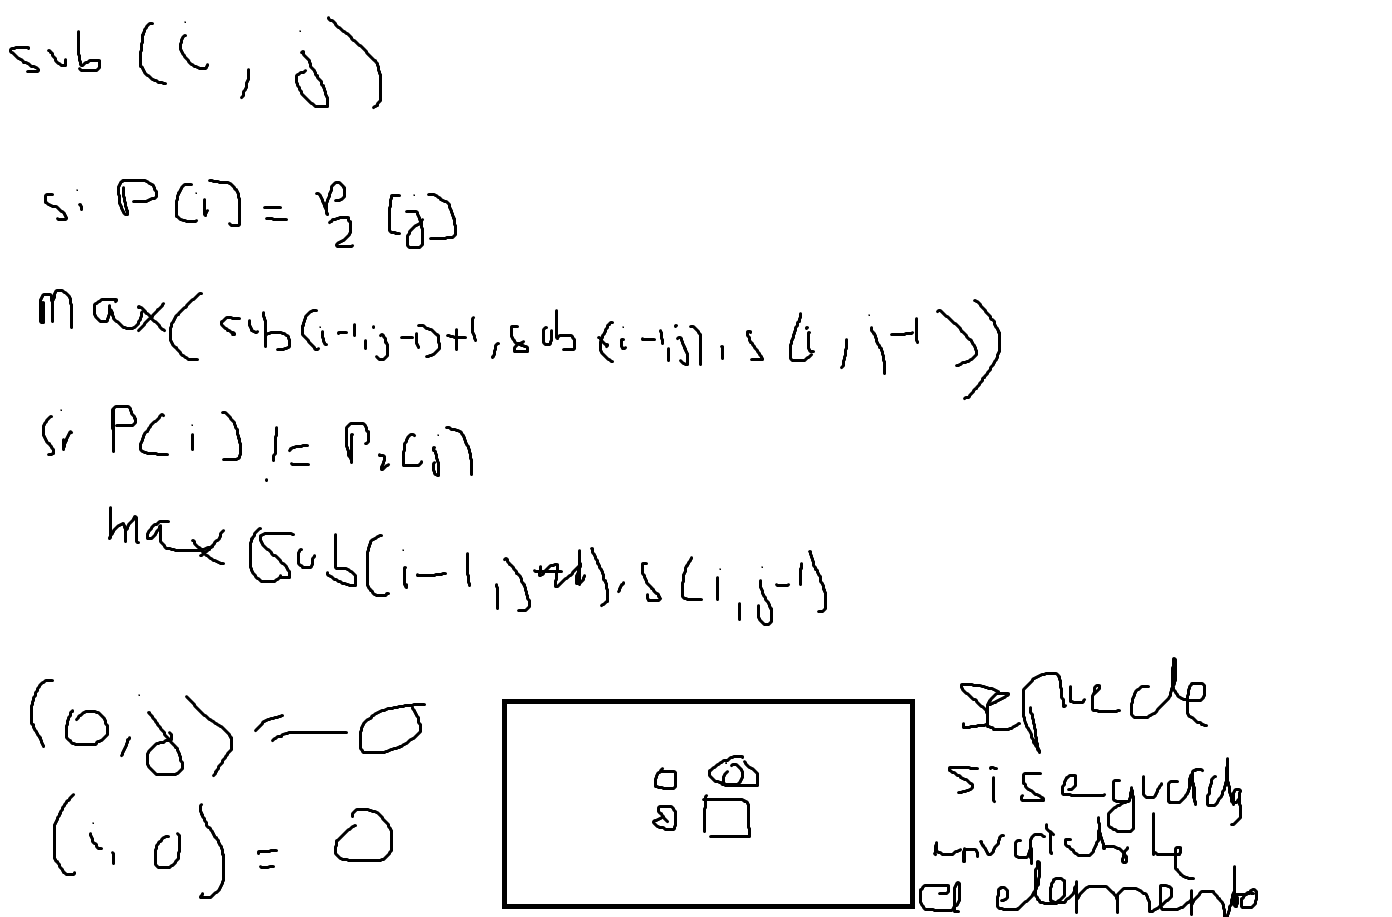 sub (i, j)
si P[i] = P2 [j]
max(sub(i-1,j-1)+1, sub (i-1,j), s (i, j-1))
si P[i] != P2[j]
max (Sub(i-1, j), s (i, j-1)
(0, j) = 0
(i, 0) = 0
se puede
si se guarda
en variable
el elemento